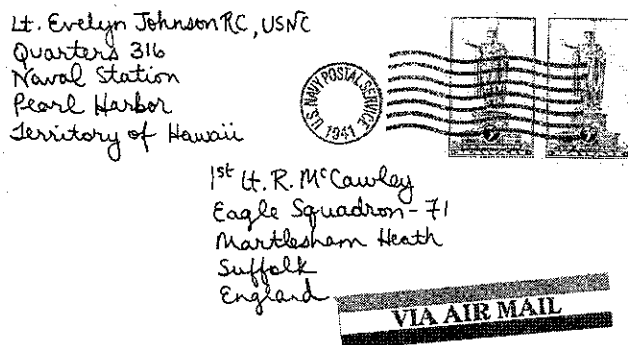 Lt. Evelyn Johnson RC, USNC
Quarters 316
Naval Station
Pearl Harbor
Territory of Hawaii
U.S. NAVY POSTAL SERVICE
1941
1st Lt. R. McCawley
Eagle Squadron - 71
Martlesham Heath
Suffolk
England
VIA AIR MAIL